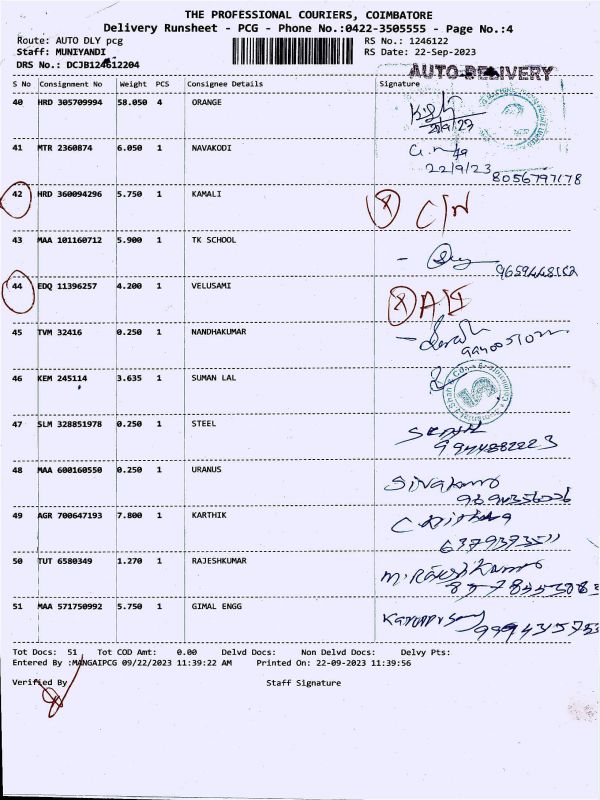 THE PROFESSIONAL COURIERS, COIMBATORE
Delivery Runsheet - PCG - Phone No.:0422-3505555 - Page No.:4
Route: AUTO DLY pcg RS No.: 1246122
Staff: MUNIYANDI RS Date: 22-Sep-2023
DRS No.: DCJB124612204
AUTO DELIVERY
S No Consignment No Weight PCS Consignee Details Signature
40 HRD 305709994 58.050 4 ORANGE
22/9/23
41 MTR 2360874 6.050 1 NAVAKODI
22/9/23 8056797178
42 HRD 360094296 5.750 1 KAMALI C/N
43 MAA 101160712 5.900 1 TK SCHOOL
44 EDQ 11396257 4.200 1 VELUSAMI
45 TVM 32416 0.250 1 NANDHAKUMAR
46 KEM 245114 3.635 1 SUMAN LAL
47 SLM 328851978 0.250 1 STEEL
48 MAA 600160550 0.250 1 URANUS
49 AGR 700647193 7.800 1 KARTHIK
6379393511
50 TUT 6580349 1.270 1 RAJESHKUMAR M. Rakesh Kumar
51 MAA 571750992 5.750 1 GIMAL ENGG
Tot Docs: 51 Tot COD Amt: 0.00 Delvd Docs: Non Delvd Docs: Delvy Pts:
Entered By :MANGAIPCG 09/22/2023 11:39:22 AM Printed On: 22-09-2023 11:39:56
Verified By Staff Signature